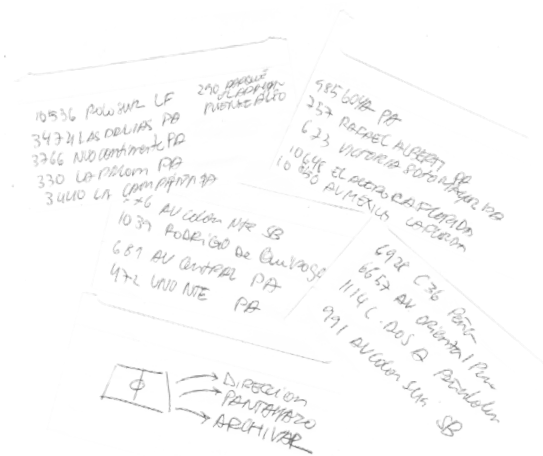 10536 POLO SUR LF
3474 LAS DALIAS PA
3766 NVO CONTINENTE PA
330 LA PALOMA PA
3440 LA CAMPANITA PA
290 PARQUE
PUENTE ALTO
985 GOYA PA
257 RAFAEL ALBERTI PA
623 VICTORIA SOTOMAYOR PA
10648 EL ACERO LA FLORIDA
10 AV MEXICO LA FLORIDA
AV COLON NTE SB
1039 RODRIGO DE QUIROGA
681 AV CENTRAL PA
472 UNO NTE PA
6928 C 36 Peña
6657 AV ORIENTAL
1114 C. DOS A Peñalolen
991 AV COLON SUR SB
DIRECCION
PANTALLAZO
ARCHIVAR